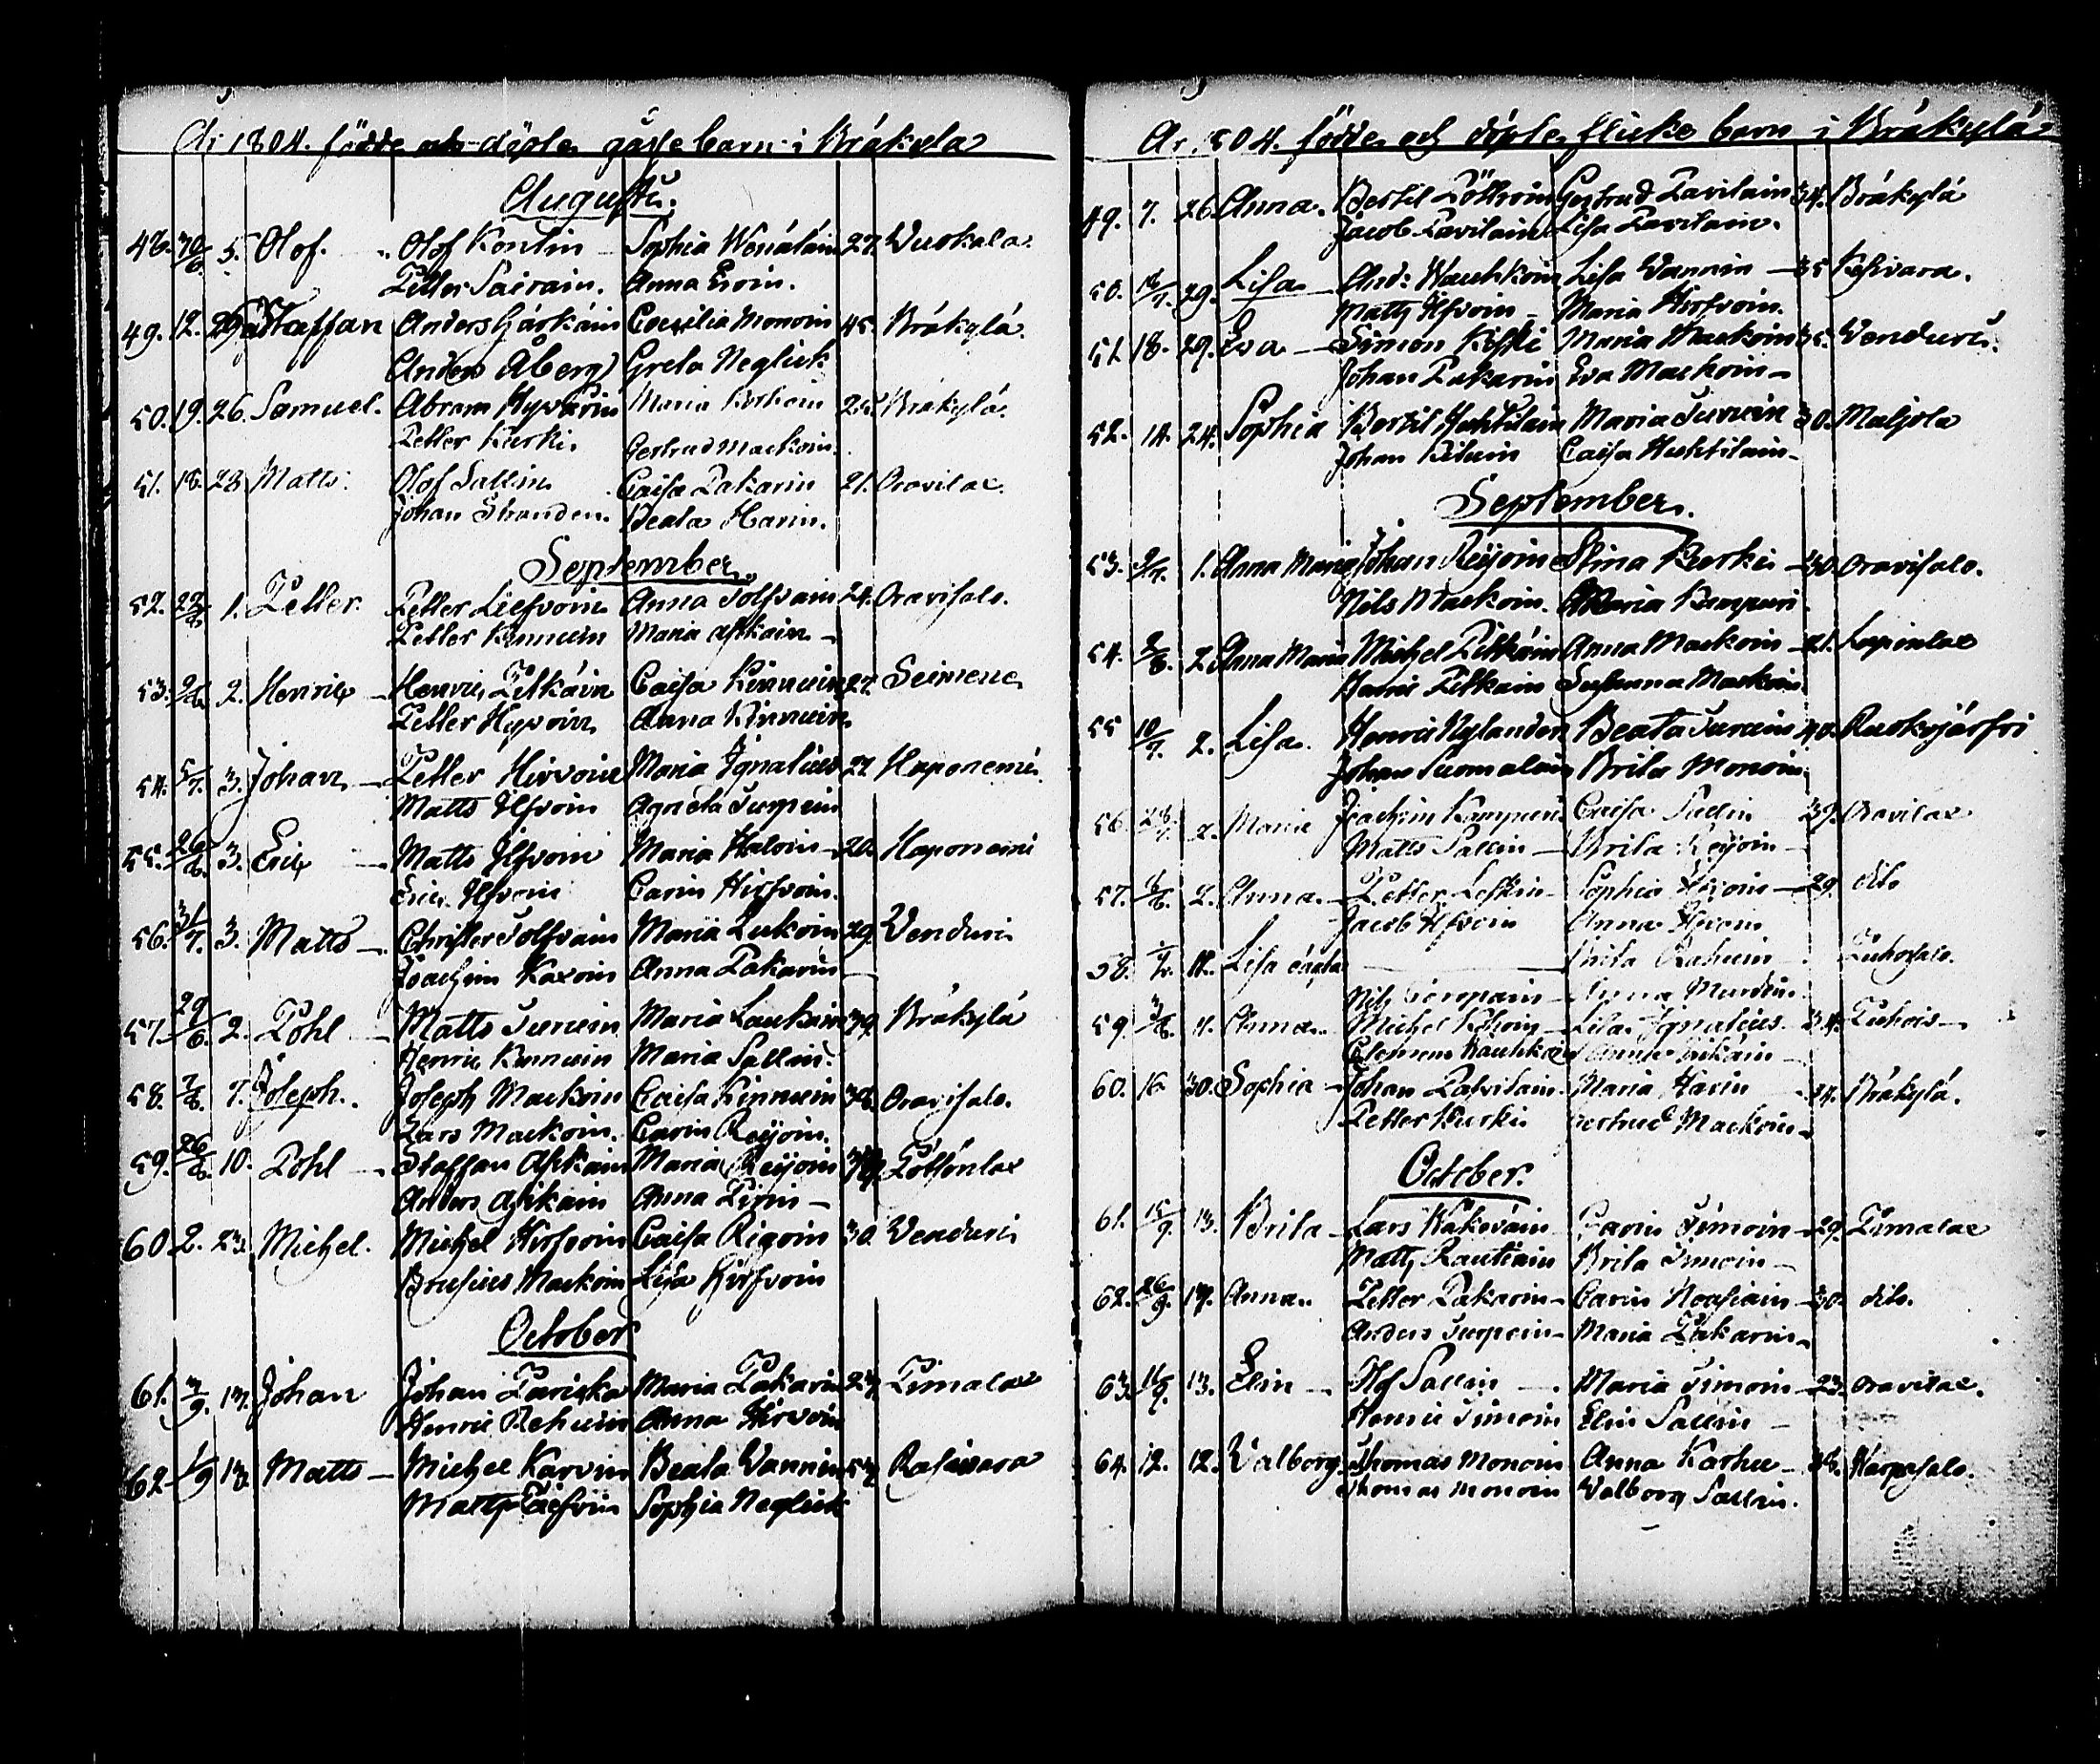 År 1804. födde och döpte gåsse barn i Bräkylä
Augusti.
48. 30/6. 5. Olof. Olof Kontin Sophia Wenäläin 27. Wuokala.
Petter Pairain. Anna Eroin.
49. 12. 29 Staffan Anders Härkäin Caecilia Monoin 45. Bräkylä.
Anders Åberg Greta Neglick
50. 19. 26. Samuel. Abram Hyvärin Maria 25. Bräkylä.
Petter Kurki. Gertrud Mackoin.
51. 18. 28 Matts. Olof Sallin Caisa Pakarin 21. Oravilax.
Johan Stranden. Beata Harin.
September
52. 1. Petter. Petter Liefvoin Anna Tolfvain 24. Oravisalo.
Petter Kinnuin Maria Askain
53. 2. Henric Henric Pitkäin Caisa Kinnuin 27. Seiniene
Petter Hyvoin Anna Kinnuin
54. 5/7. 3. Johan Petter Hirvoin Maria Ignatius 27. Haponemi.
Matts Ilfvoin Agneta Turpein
55. 26/6. 3. Eric Matts Ilfvoin Maria Haloin 20. Haponemi
Eric Ilfvoin Carin Hirfvoin.
56. 31/7. 3. Matts Christer Tolfvain Maria Lukoin 29. Venduri
Joachim Kaxoin Anna Pakarin
57. 29/6. 2. Pohl Matts Turuin Maria Laukain 39. Bräkylä
Henric Kinnuin Maria Sallin.
58. 7/8. 7. Joseph. Joseph Mackoin Caisa Kinnuin 38. Oravisalo.
Lars Mackoin. Carin Reijoin.
59. 26/8. 10. Pohl Staffan Askain Maria Reijoin Pötsönlax
Anders Askain Anna Pirin
60 2. 23. Michel. Michel Hirfvoin Caisa Rigoin 30 Venduri
Brusius Mackoin Lisa Hirfvoin
October
61. 3/9. 13. Johan Johan Pariska Maria Pakarin 23. Pimalax
Henric Rehuin Anna Hirvoin
62 1/9 13. Matts Michel Karvin Beata Wannin Rasivara
Matts Liefvoin Sophia Neglick
År 1804. födde och döpte flicke barn i Bräkylä
49. 7. 26. Anna. Bertil Pöllröin Gertrud Pavilain 34. Bräkylä
Jacob Pavilain Lisa Pavilain.
50. 29. Lisa And: Wauhkoin Lisa Wannin 35 Kesivara.
Matts Ilfvoin Maria Hirfvoin.
51. 18. 29. Eva Simon Kiski Maria Mackoin 35. Venduri.
Johan Pakarin Eva Mackoin
52. 14. 24. Sophia Bertil Huhtilain Maria Turuin 30. Maljola
Johan Caisa Huhtilain
September.
53. 9/7. 1. Anna Maria Johan Reijoin Stina Kurki 30. Oravisalo.
Nils Mackoin. Maria Kampuri
54. 2. Anna Maria Michel Pitkäin Anna Mackoin 21. Lapinlax
Henric Pitkäin Susanna Mackoin
55 10/7. 2. Lisa. Henric Nylander Beata Turuin 40. Ruokojärfvi
Johan Suomalain Brita Monoin
56. 2. Maria Joachim Kampuri. Caisa Sallin 39. Oravilax
Matts Sallin Brita Reijoin
57. 2. Anna. Petter Leskin Sophia Hiroin 29. dito
Jacob Ilfvoin Anna Hiroin
58. 11. Lisa oäcta Brita Rahuin Puhosalo.
Nils Turpain Anna Murdin
59. 11. Anna. Michel Lisa Ignatius 34. Puhois
Clemens Wauhkoin Anna Pitkäin
60. 16 30. Sophia Johan Pafvilain. Maria Harin 24. Bräkylä.
Petter Kurki Gertrud Mackoin
October.
61. 15/9. 13. Brita Lars Käkeväin Carin Simoin 29. Pimalax
Matts Rautiain Brita Simoin
62. 26/9. 17. Anna. Petter Pakarin Carin Hoasiain 30. dito.
Anders Turpein Maria Pakarin
63. 16/9. 13. Elin Olof Sallin Maria Simoin 23. Oravilax.
Henric Simoin Elin Sallin
64. 12. 12. Valborg. Thomas Monoin Anna Karhu 38. Karpasalo.
Thomas Monoin Valborg Sallin.